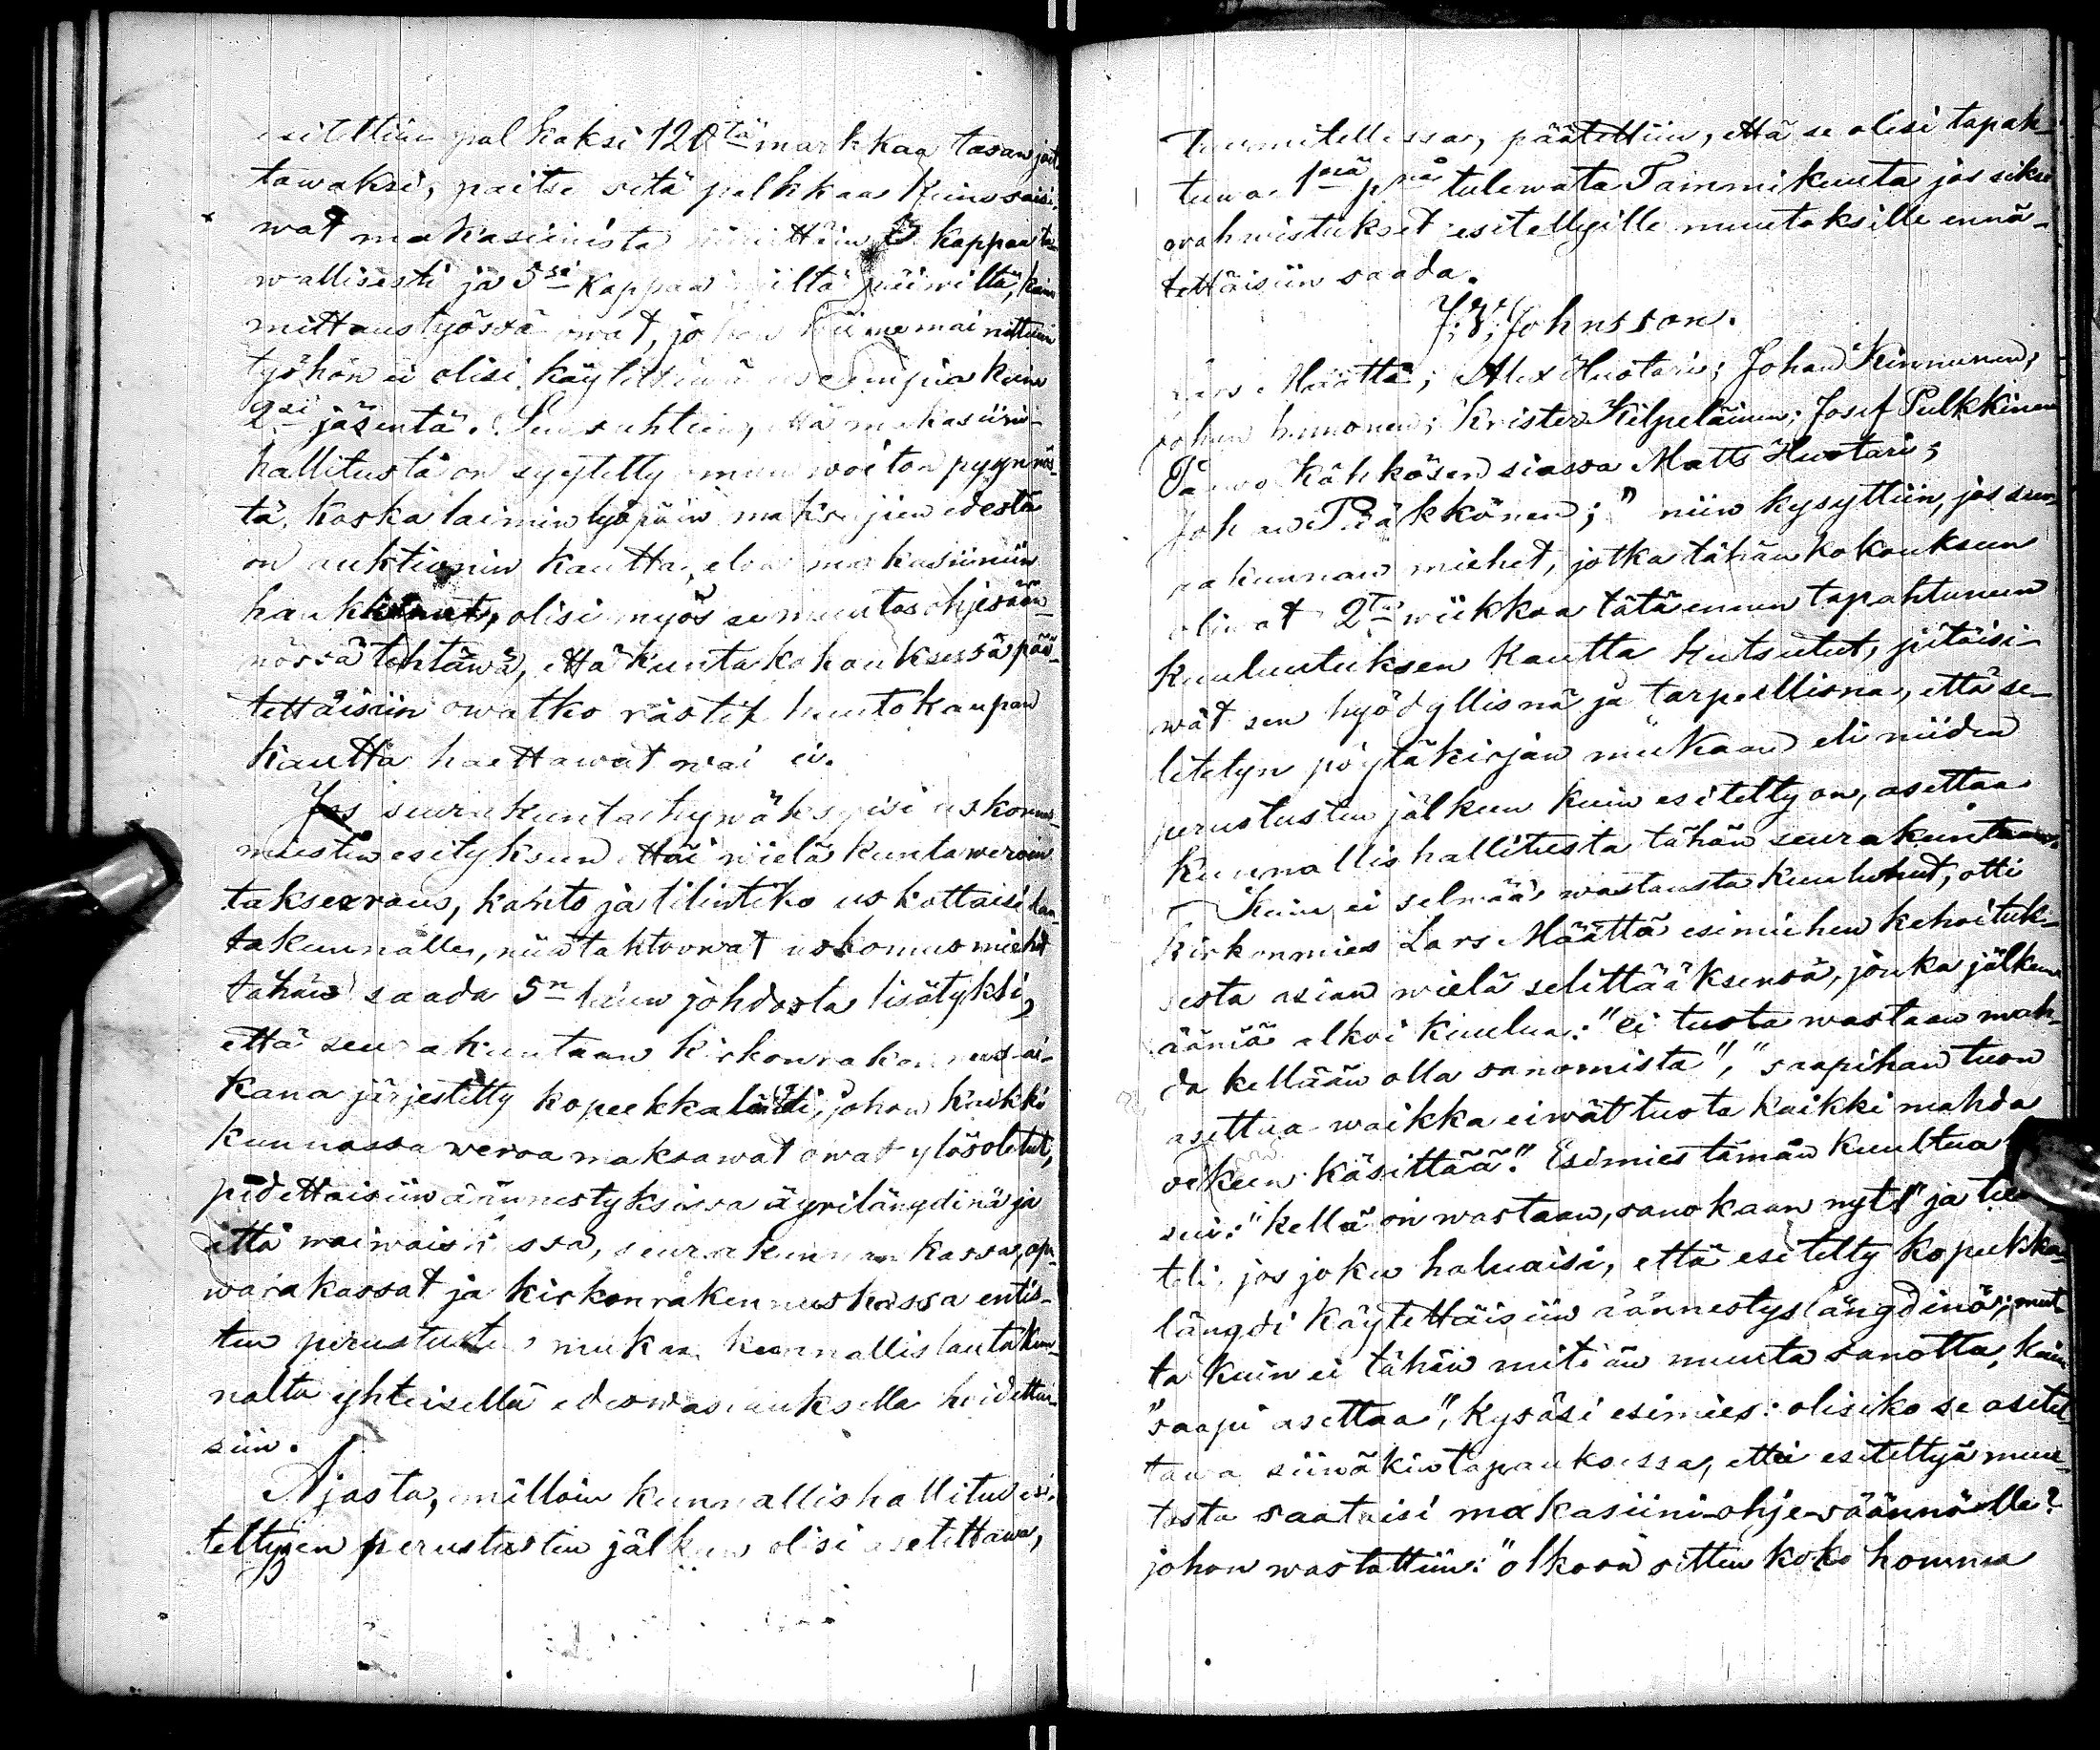 esiteltiin palkaksi 120tä markkaa tasan jaet-
tawaksi, paitse sitä palkkaa kuin saisi-
wat makasiinista kappaa ta-
wallisesti ja 5si kappaa niiltä päiwiltä, kuin
mittaustyössä owat, johon wiimemainittuun
työhön ei olisi käytettäwä useampia kuin
2si jäsentä. Sen suhteen, että makasiini-
hallitusta on syytetty oman woiton pyynnös-
tä, koska laiminlyöpäin maksujien edestä
on auktionin kautta, eloa makasiiniin
hankkinut, olisi myös se muutos ohjesään-
nössä tehtäwä, että kuntakokouksessa pää-
tettäisiin owatko rästit huutokaupan
kautta haettawat wai ei.
Jos seurakunta hywäksyisi uskomus-
miesten esityksen että wielä kuntaweroin
takseeraus, kanto ja tilinteko uskottaisi lau-
takunnalle, niin tahtoowat uskomusmiehet
tähän saada 5n luun johdosta lisätyksi,
että seurakuntaan kirkonrakennus ai-
kana järjestetty kopeekkalängdi, johon kaikki
kunnassa weroa maksawat owat ylösotetut,
pidettäisiin äännestyksissä äyrilängdinä ja
että waiwais kassa, seurakunnan kassa, apu-
warakassat ja kirkonrakennuskassa entis-
ten perustusten mukaan kunnallislautakun-
nalta yhteisellä edeswastauksella hoidettai-
siin.
Ajasta, milloin kunnallishallitus esi-
teltyjen perustusten jälkeen olisi asetettawa,
tuumitellessa, päätettiin, että se olisi tapah-
tuwa 1sä pnä tulewata Tammikuuta jos siksi
wahwistukset esitellyille muutoksille ennä-
tettäisiin saada.
J. V. Johnsson.
Lars Määttä; Alex Huotari; Johan Kinnunen;
Johan ; Krister Kilpeläinen; Josef Pulkkinen
Paawo Kähkösen siassa Matts Huotari;
Johan Pääkkönen;" niin kysyttiin, jos seu-
rakunnan miehet, jotka tähän kokouksen
oliwat 2ta wiikkoa tätä ennen tapahtuneen
kuulutuksen kautta kutsutut, pitäisi-
wät sen hyödyllisnä ja tarpeellisna, että se-
litetyn pöytäkirjan mukaan eli niiden
perustusten jälkeen kuin esitelty on, asettaa
kunnallishallitusta tähän seurakuntaan.
Kuin ei selwää wastausta kuulunut, otti
kirkonmies Lars Määttä esimiehen kehoituk-
sesta asian wielä selittääksensä, jonka jälkeen
ääniä alkoi kuulua: "ei tuota wastaan mah-
da kellään olla sanomista", "saapihan tuon
asettaa waikka eiwät tuota kaikki mahda
oikeen käsittää." Esimies tämän kuultua
: "kellä on wastaan, sanokaan nyt!" ja
teli, jos joku haluaisi, että esitelty kopeekka-
längdi käytettäisiin äännestyslängdinä; mut-
ta kuin ei tähän mitään muuta sanottu, kuin
"saapi asettaa", kysäsi esimies: olisiko se asetet-
tawa siinäkin tapauksessa, ettei esiteltyä muu-
tosta saataisi makasiini-ohjesäännölle?
johon wastattiin: "olkoon sitten koko homma